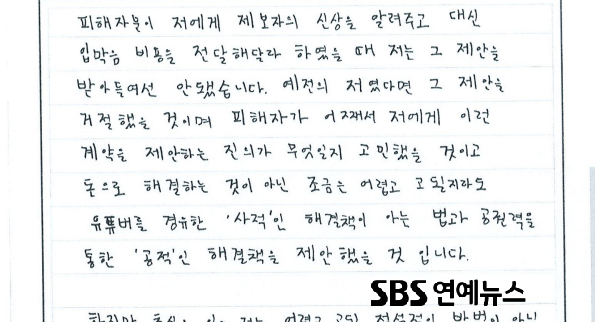 피해자분이 저에게 제보자의 신상을 알려주고 대신
입막음 비용을 전달해달라 하였을 때 저는 그 제안을
받아들여선 안됐습니다. 예전의 저였다면 그 제안을
거절했을 것이며 피해자가 어째서 저에게 이런
계약을 제안하는 진의가 무엇일지 고민했을 것이고
돈으로 해결하는 것이 아닌 조금은 어렵고 고될지라도
유튜버를 경유한 '사적'인 해결책이 아는 법과 공권력을
통한 '공적'인 해결책을 제안했을 것 입니다.
SBS 연예뉴스
하지만